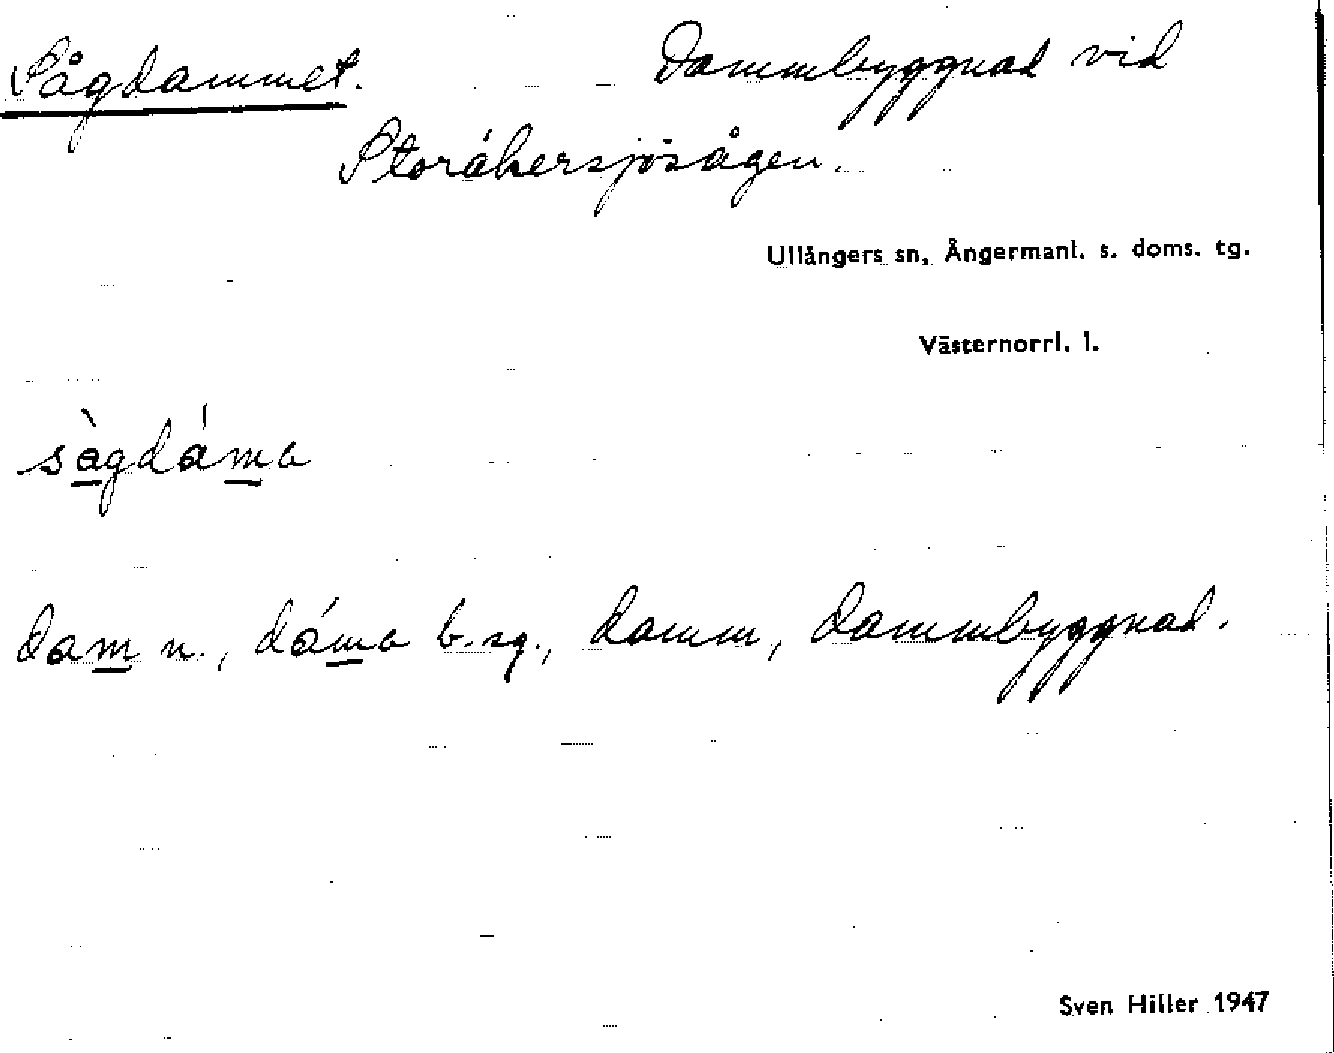 Sågdammet. Dammbyggnad vid
Storåkersjösågen.
Ullångers sn, Ångermanl. s. doms. tg.
Västernorrl. l.
sàgdáma
dam n., dáma b.sg., damm, dammbyggnad.
Sven Hiller 1947